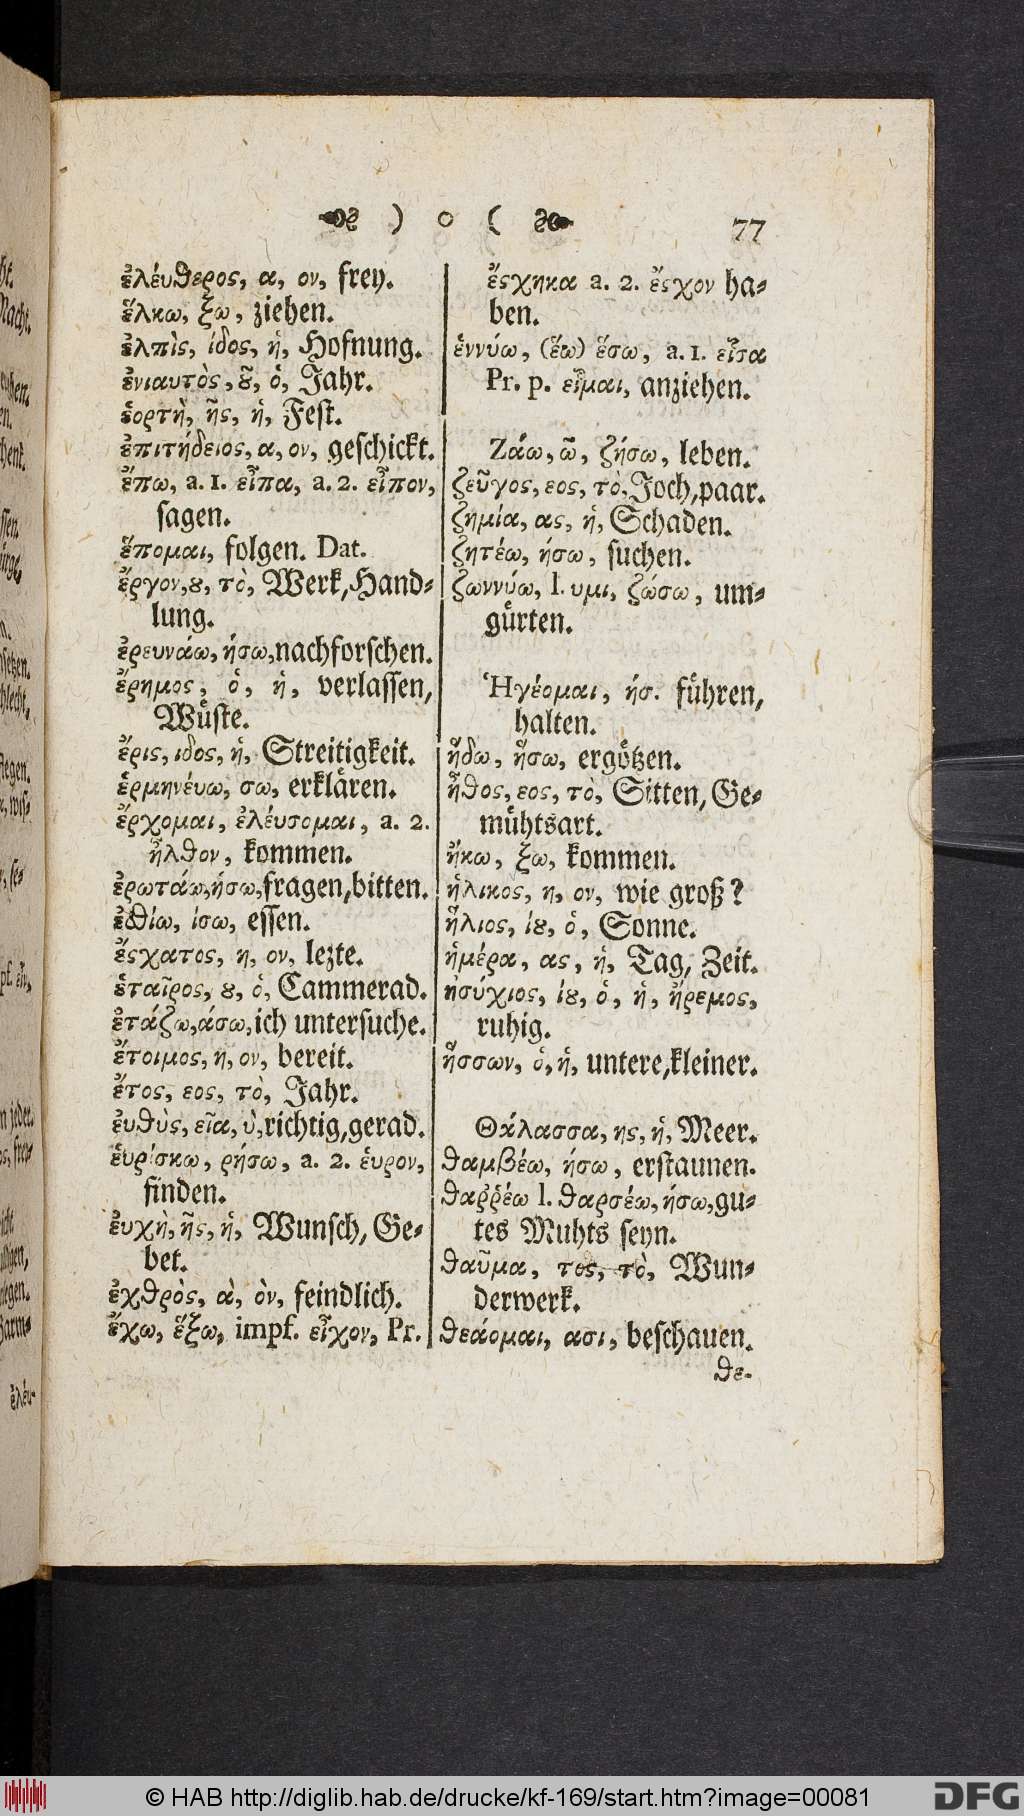 ) o ( 77
ἐλέυθερος, α, ον, frey.
ἕλκω, ξω, ziehen.
ἐλπὶς, ίδος, ἡ, Hofnung.
ἐνιαυτὸς, ȣ͂, ὁ, Jahr.
ἑορτὴ, ῆς, ἡ, Fest.
ἐπιτήδειος, α, ον, geschickt.
ἔπω, a. 1. εἶπα, a. 2. εἶπον,
sagen.
ἕπομαι, folgen. Dat.
ἔργον, ȣ, τὸ, Werk, Hand-
lung.
ἐρευνάω, ήσω, nachforschen.
ἔρημος, ὁ, ἡ, verlassen,
Wüste.
ἔρις, ιδος, ἡ, Streitigkeit.
ἑρμηνέυω, σω, erklären.
ἔρχομαι, ἐλέυσομαι, a. 2.
ἦλθον, kommen.
ἐρωτάω, ήσω, fragen, bitten.
ἐσθίω, ίσω, essen.
ἔσχατος, η, ον, lezte.
ἑταῖρος, ȣ, ὁ, Cammerad.
ἐτάζω, άσω, ich untersuche.
ἔτοιμος, η, ον, bereit.
ἔτος, εος, τὸ, Jahr.
ἐυθὺς, εῖα, ὺ, richtig, gerad.
ἑυρίσκω, ρήσω, a. 2. ἑυρον,
finden.
ἐυχὴ, ῆς, ἡ, Wunsch, Ge-
bet.
ἐχθρὸς, ὰ, ὸν, feindlich.
ἔχω, ἕξω, impf. εἶχον, Pr.
ἔσχηκα a. 2. ἔσχον ha-
ben.
ἑννύω, (ἕω) ἕσω, a. 1. εἶσα
Pr. p. εἶμαι, anziehen.
Ζάω, ῶ, ζήσω, leben.
ζεῦγος, εος, τὸ, Joch, paar.
ζημία, ας, ἡ, Schaden.
ζητέω, ήσω, suchen.
ζωννύω, l. υμι, ζώσω, um-
gürten.
Ἡγέομαι, ήσ. führen,
halten.
ἥδω, ἥσω, ergötzen.
ἦθος, εος, τὸ, Sitten, Ge-
mühtsart.
ἥκω, ξω, kommen.
ἡλικος, η, ον, wie groß?
ἥλιος, ίȣ, ὁ, Sonne.
ἡμέρα, ας, ἡ, Tag, Zeit.
ἡσύχιος, ίȣ, ὁ, ἡ, ἤρεμος,
ruhig.
ἥσσων, ὁ, ἡ, untere, kleiner.
Θάλασσα, ης, ἡ, Meer.
θαμβέω, ήσω, erstaunen.
θαῤῥέω l. θαρσέω, ήσω, gu-
tes Muhts seyn.
θαῦμα, τος, τὸ, Wun-
derwerk.
θεάομαι, ασι, beschauen.
θε-
© HAB http://diglib.hab.de/drucke/kf-169/start.htm?image=00081
DFG